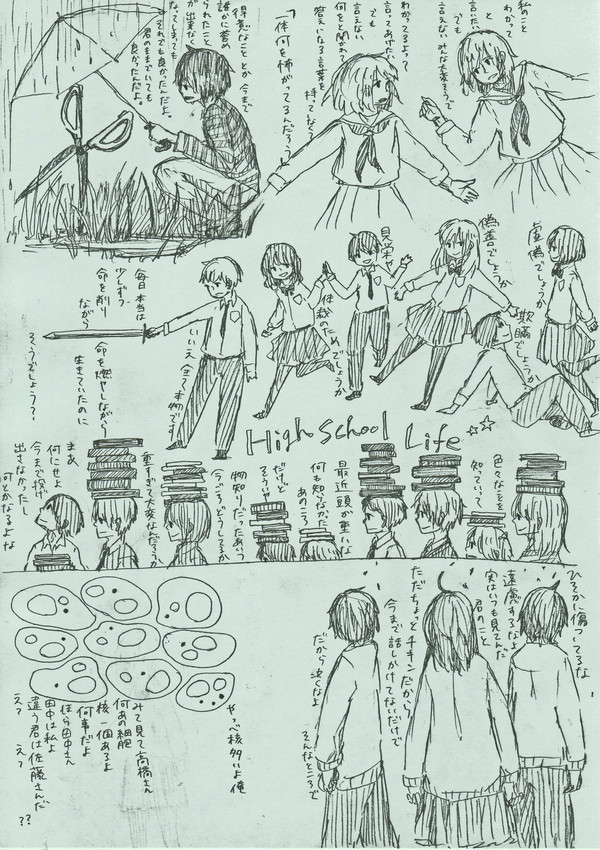 私のこと
わかって
と
言いたい
でも
言えない みんな大変そうで
わかってるよって
言ってあげたい
でも
言えない
何をと聞かれて
答えになる言葉を
持ってなくて
「一体何を怖がってるんだろう」
得意なこととか 今まで
誰かに褒め
られたこと
が出来なく
なってしまっても
それでも良かったんだよ。
君のままでいても
良かったんだよ。
虚偽でしょうか
欺瞞でしょうか
偽善でしょうか
見栄や
体裁のためでしょうか
いいえ 全て本物です
毎日 本当は
少しずつ
命を削り
ながら
命を燃やしながら
生きていたのに
そうでしょう?
High School Life ☆☆
色々なことを
知っていて
最近頭が重いな
何も知らなかった
あのころ
だけど
そういや
物知りだったあいつ
今ごろどうしてるか
重すぎて大変なんだろうか
まあ
何にせよ
今まで投げ
出さなかったし
何とかなるよな
ひそかに傷ついてるな
遠慮するなよ
実はいつも見てんだ
君のこと
ただちょっとチキンだから
今まで話しかけてないだけで
だから泣くなよ
そんなところで
やっべ核多いよ俺
みて見て高橋さん
何あの細胞
核一個あるよ
何事だよ
田中は私よ
違う君は佐藤さんだ
え? え?
??